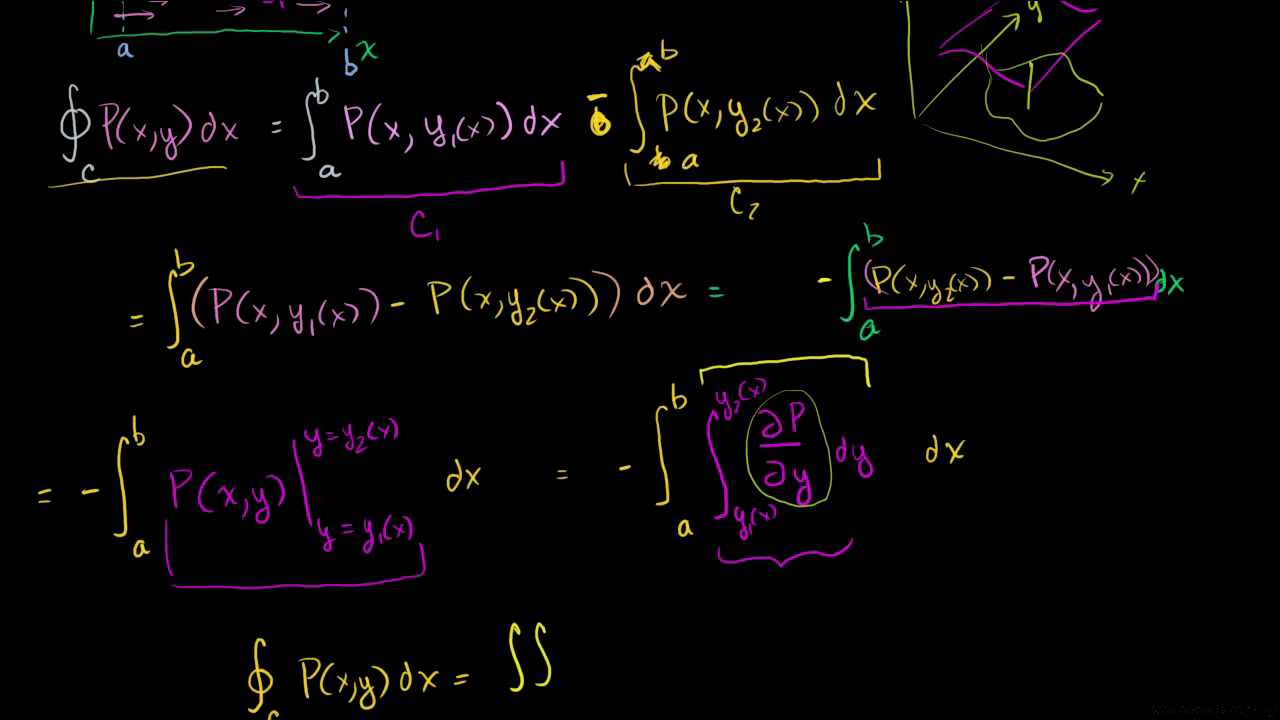 a b x y x
∮_C P(x,y) dx = ∫_a^b P(x, y₁(x)) dx - ∫_a^b P(x, y₂(x)) dx
C₁ C₂
= ∫_a^b (P(x, y₁(x)) - P(x, y₂(x))) dx = - ∫_a^b (P(x, y₂(x)) - P(x, y₁(x))) dx
= - ∫_a^b P(x,y) |_{y = y₁(x)}^{y = y₂(x)} dx = - ∫_a^b ∫_{y₁(x)}^{y₂(x)} ∂P/∂y dy dx
∮_C P(x,y) dx = ∫∫